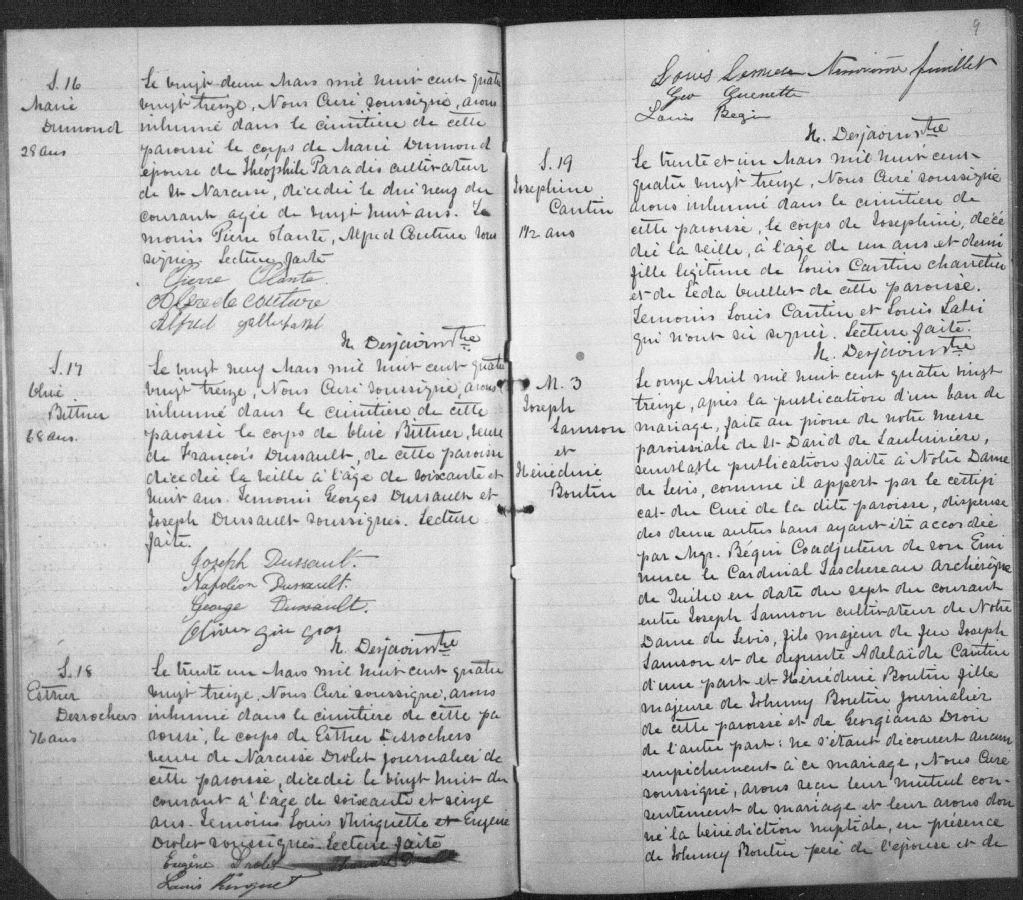 S. 16
Marie
Dumond
28 ans
Le vingt deux Mars mil huit cent quatre
vingt treize, Nous Curé soussigné, avons
inhumé dans le cimitière de cette
paroisse le corps de Marie Dumond
épouse de Théophile Paradis cultivateur
de St Narcisse, décédée le dix neuf du
courant agée de vingt huit ans. Té
moins Pierre Plante, Alfred Couture sous
signés. Lecture faite
Pierre Plante
couture
Alfred
N. Desjardins Ptre
S. 17
Bittner
68 ans.
Le vingt neuf Mars mil huit cent quatre
vingt treize, Nous Curé soussigné, avons
inhumé dans le cimitière de cette
paroisse le corps de Bittner, veuve
de François Dussault, de cette paroisse
décédée la veille à l'âge de soixante et
huit ans. Temoins Georges Dussault et
Joseph Dussault soussignés. Lecture
faite.
Joseph Dussault.
Napoléon Dussault.
George Dussault.
Olivier
N. Desjardins Ptre
S. 18
Esther
Desrochers
76 ans
Le trente un Mars mil huit cent quatre
vingt treize, Nous Curé soussigné, avons
inhumé dans le cimitière de cette pa
roisse, le corps de Esther Desrochers
veuve de Narcisse Drolet journalier de
cette paroisse, décédée le vingt huit du
courant à l'âge de soixante et seize
ans. Temoins Louis et Eugène
Drolet soussignés. Lecture faite
Eugène Drolet
Louis
9
Louis Neuvième feuillet
Geo Guenette
Louis Begin
N. Desjardins Ptre
S. 19
Josephine
Cantin
1 1/2 ans
Le trente et un Mars mil huit cent
quatre vingt treize, Nous Curé soussigné
avons inhumé dans le cimitière de
cette paroisse, le corps de Josephine, décé
dée la veille, à l'âge de un ans et demi
fille légitime de Louis Cantin charretier
et de Léda Ouellet de cette paroisse.
Temoins Louis Cantin et Louis
qui n'ont su signer. Lecture faite.
N. Desjardins Ptre
M. 3
Joseph
Samson
et
Hénédine
Boutin
Le onze Avril mil huit cent quatre vingt
treize, après la publication d'un ban de
mariage, faite au prône de notre messe
paroissiale de St David de Lauberivière,
semblable publication faite à Notre Dame
de Lévis, comme il appert par le certifi
cat du Curé de la dite paroisse, dispense
des deux autres bans ayant été accordée
par Mgr. Bégin Coadjuteur de son Emi
nence le Cardinal Taschereau Archevêque
de Québec en date du sept du courant
entre Joseph Samson cultivateur de Notre
Dame de Lévis, fils majeur de feu Joseph
Samson et de defunte Adelaide Cantin
d'une part et Hénédine Boutin fille
majeure de Johnny Boutin journalier
de cette paroisse et de Georgiana Dion
de l'autre part: ne s'étant découvert aucun
empêchement à ce mariage, Nous Curé
soussigné, avons reçu leur mutuel con-
sentement de mariage et leur avons don
né la bénédiction nuptiale, en présence
de Johnny Boutin père de l'épouse et de